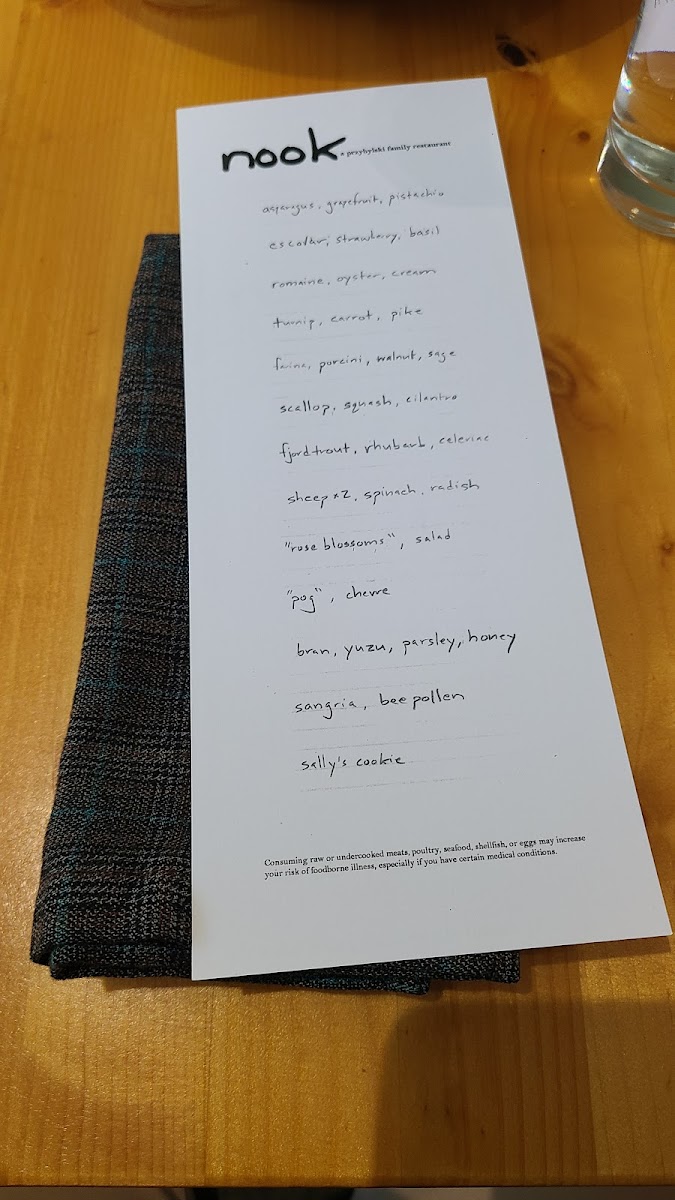 nook a przybylski family restaurant
asparagus, grapefruit, pistachio
escolar, strawberry, basil
romaine, oyster, cream
turnip, carrot, pike
farina, porcini, walnut, sage
scallop, squash, cilantro
fjord trout, rhubarb, celeriac
sheep x2, spinach, radish
"rose blossoms", salad
"pog", chevre
bran, yuzu, parsley, honey
sangria, bee pollen
sally's cookie
Consuming raw or undercooked meats, poultry, seafood, shellfish, or eggs may increase
your risk of foodborne illness, especially if you have certain medical conditions.